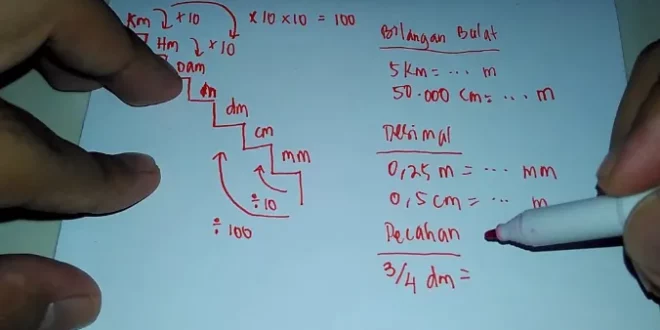 Km ×10 ×10×10 = 100
Hm ×10
Dam
m
dm
cm
mm
÷10
÷100
Bilangan Bulat
5 Km = ... m
50.000 cm = ... m
Desimal
0,25 m = ... mm
0,5 cm = ... m
Pecahan
3/4 dm =